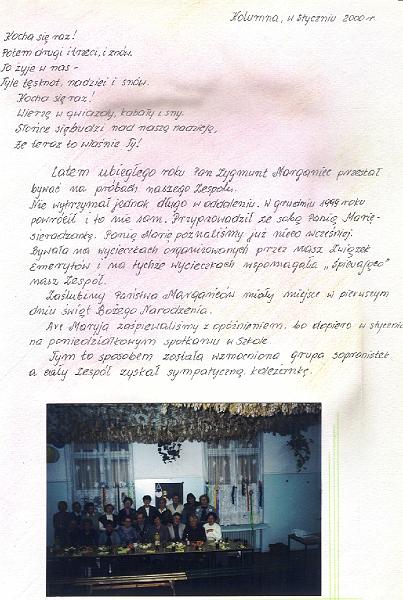 Kolumna, w styczniu 2000 r.
Kocha się raz!
Potem drugi i trzeci, i znów.
To żyje w nas -
Tyle tęsknot, nadziei i snów.
Kocha się raz!
Wierzę w gwiazdy, kabały i sny.
Słońce się budzi nad naszą nadzieją,
Że teraz to właśnie Ty!
Latem ubiegłego roku Pan Zygmunt Morganiec przestał
bywać na próbach naszego Zespołu.
Nie wytrzymał jednak długo w oddaleniu. W grudniu 1999 roku
powrócił i to nie sam. Przyprowadził ze sobą Panią Marię -
sieradzankę. Panią Marię poznaliśmy już nieco wcześniej.
Bywała na wycieczkach organizowanych przez nasz Związek
Emerytów i na tychże wycieczkach wspomagała "śpiewająco"
nasz Zespół.
Zaślubiny Państwa Morgańców miały miejsce w pierwszym
dniu świąt Bożego Narodzenia.
Ave Maryja zaśpiewaliśmy z opóźnieniem, bo dopiero w styczniu
na poniedziałkowym spotkaniu w Szkole.
Tym to sposobem została wzmocniona grupa sopranistek
a cały Zespół zyskał sympatyczną koleżankę.